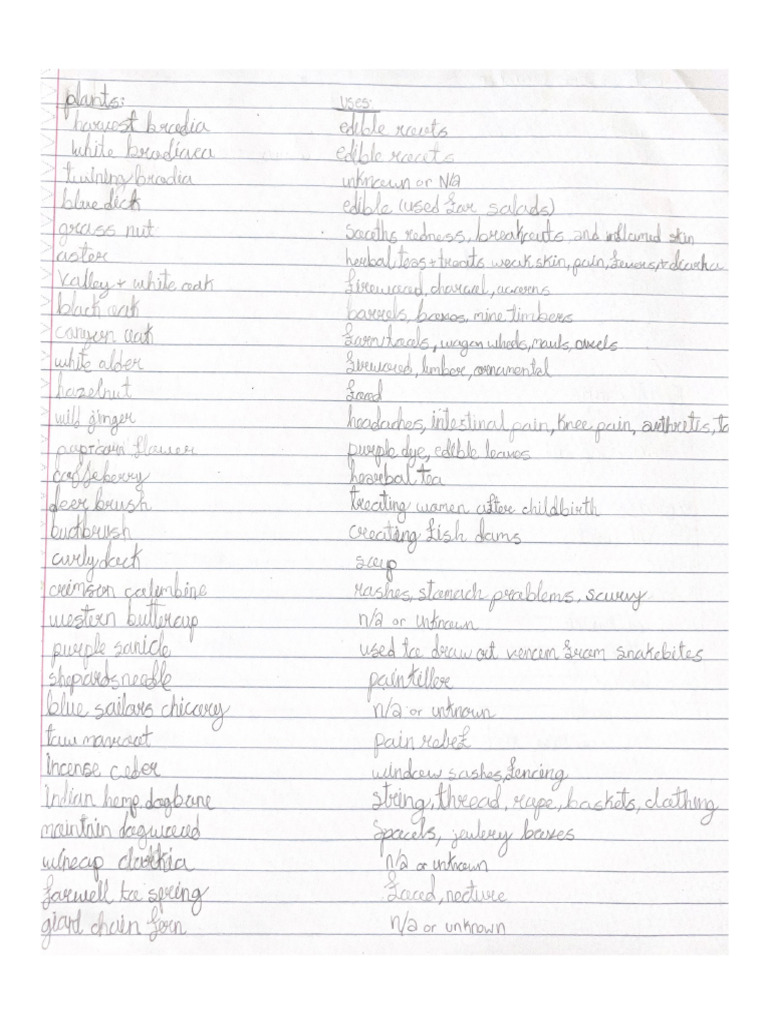 plants: uses:
harvest brodia edible roots
white brodiaea edible roots
twining brodia unknown or N/a
blue dick edible (used for salads)
grass nut sooths redness, breakouts, and inflamed skin
aster herbal teas + treats weak skin, pain, fevers, + diarha
Valley + white oak firewood, charcol, acorns
black oak barrels, boxes, mine timbers
canyon oak farm tools, wagon wheels, mauls,
white alder firewood, limber, ornamental
hazelnut food
wild ginger headaches, intestinal pain, knee pain, arthretis, to
popcorn flower purple dye, edible leaves
coffeberry hearbal tea
deer brush treating women after childbirth
buckbrush creating fish dams
curly dock soup
crimson calumbine rashes, stomach problems, scurvy
western buttercup n/a or unknown
purple sanicle used to draw out venom from snakebites
shepards needle painkiller
blue sailors chicory n/a or unknown
pain relief
incense ceder window sashes, fencing
Indian hemp, dogbane string, thread, rope, baskets, clothing
maintain dogwood spools, jewlery boxes
winecup clarkia n/a or unknown
farwell to spring food, necture
giant chain fern n/a or unknown